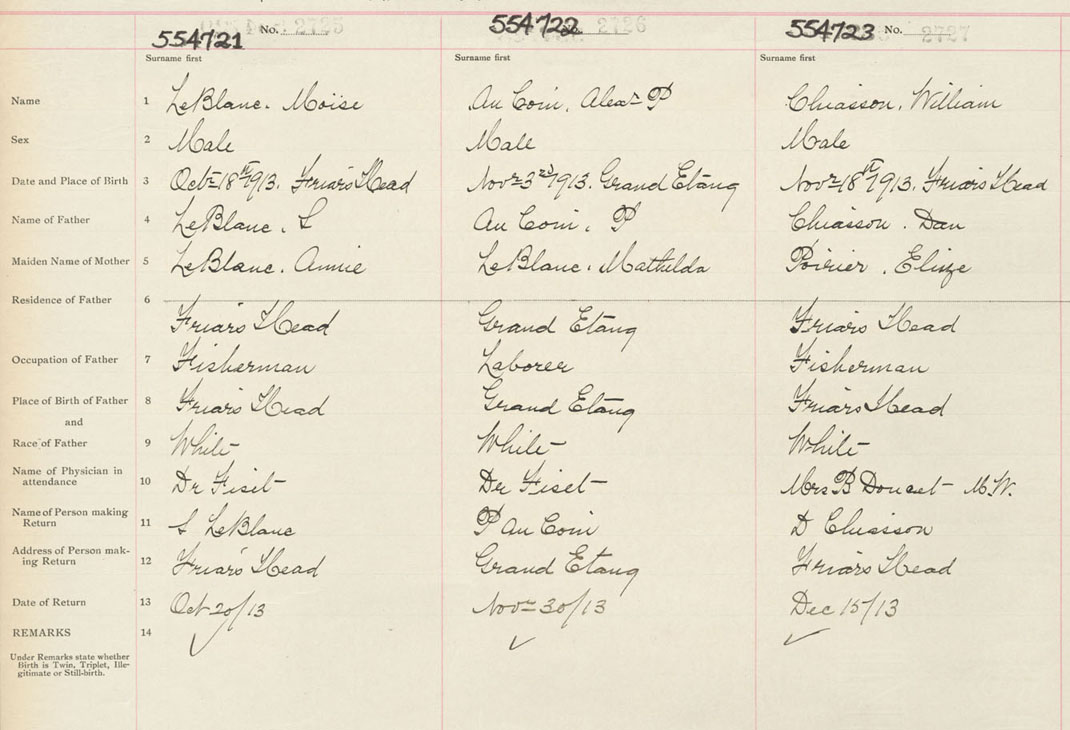 554721 No. 2725 554722 No. 2726 554723 No. 2727
Surname first Surname first Surname first
Name 1 LeBlanc. Moïse Au Coin, Alexr P Chiasson, William
Sex 2 Male Male Male
Date and Place of Birth 3 Octr 18th 1913. Friar's Head Novr 3rd 1913. Grand Etang Novr 18th 1913. Friar's Head
Name of Father 4 LeBlanc. S Au Coin. P Chiasson. Dan
Maiden Name of Mother 5 LeBlanc. Annie LeBlanc. Mathilda Poirier. Elize
Residence of Father 6 Friar's Head Grand Etang Friar's Head
Occupation of Father 7 Fisherman Laborer Fisherman
Place of Birth of Father 8 Friar's Head Grand Etang Friar's Head
and
Race of Father 9 White White White
Name of Physician in
attendance 10 Dr Fiset Dr Fiset Mrs B Doucet M.W.
Name of Person making
Return 11 S LeBlanc P Au Coin D Chiasson
Address of Person mak-
ing Return 12 Friar's Head Grand Etang Friar's Head
Date of Return 13 Oct 20/13 Novr 30/13 Dec 15/13
REMARKS 14
Under Remarks state whether
Birth is Twin, Triplet, Ille-
gitimate or Still-birth.